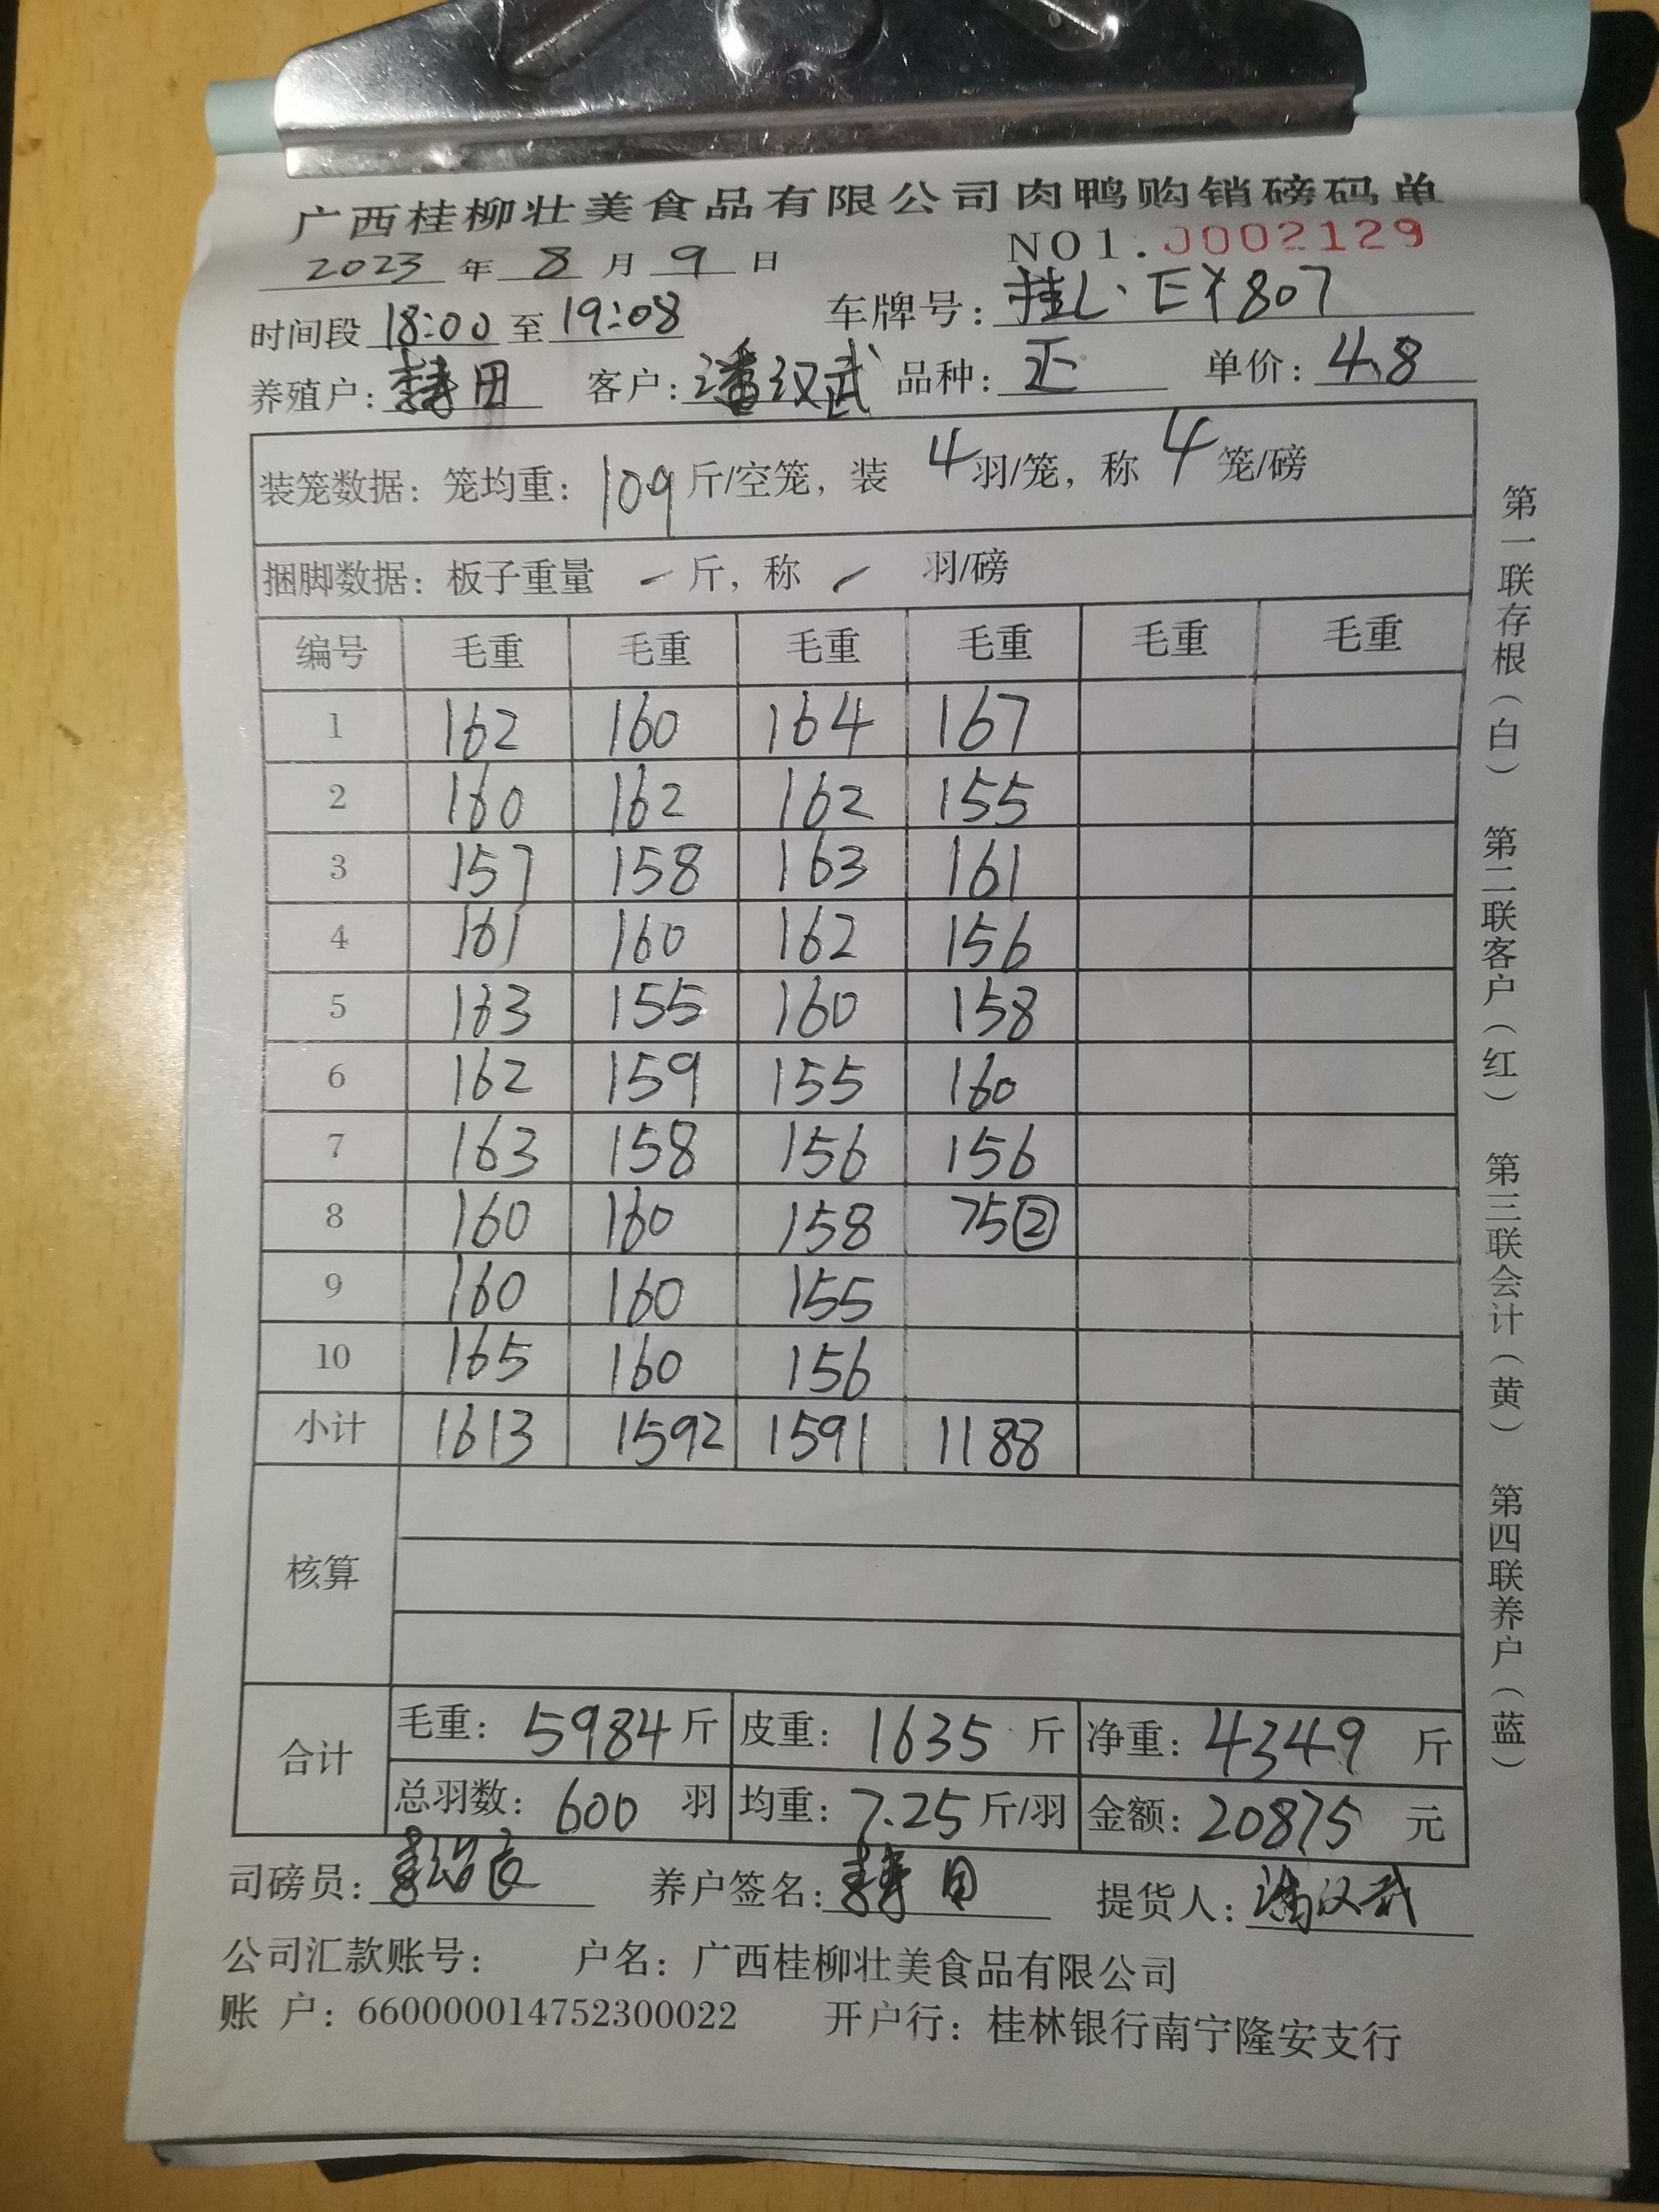 广西桂柳壮美食品有限公司肉鸭购销磅码单
2023 年 8 月 9 日 NO1.0002129
时间段 18:00 至 19:08 车牌号: 桂L·EY807
养殖户: 客户: 潘汉武 品种: 正 单价: 4.8
装笼数据: 笼均重: 109 斤/空笼, 装 4 羽/笼, 称 4 笼/磅
捆脚数据: 板子重量 - 斤, 称 - 羽/磅
编号 毛重 毛重 毛重 毛重 毛重 毛重
1 162 160 164 167
2 160 162 162 155
3 157 158 163 161
4 161 160 162 156
5 163 155 160 158
6 162 159 155 160
7 163 158 156 156
8 160 160 158 75②
9 160 160 155
10 165 160 156
小计 1613 1592 1591 1188
核算
合计 毛重: 5984 斤 皮重: 1635 斤 净重: 4349 斤
总羽数: 600 羽 均重: 7.25 斤/羽 金额: 20875 元
司磅员: 养户签名: 提货人: 潘汉武
公司汇款账号: 户名: 广西桂柳壮美食品有限公司
账 户: 660000014752300022 开户行: 桂林银行南宁隆安支行
第一联存根(白) 第二联客户(红) 第三联会计(黄) 第四联养户(蓝)